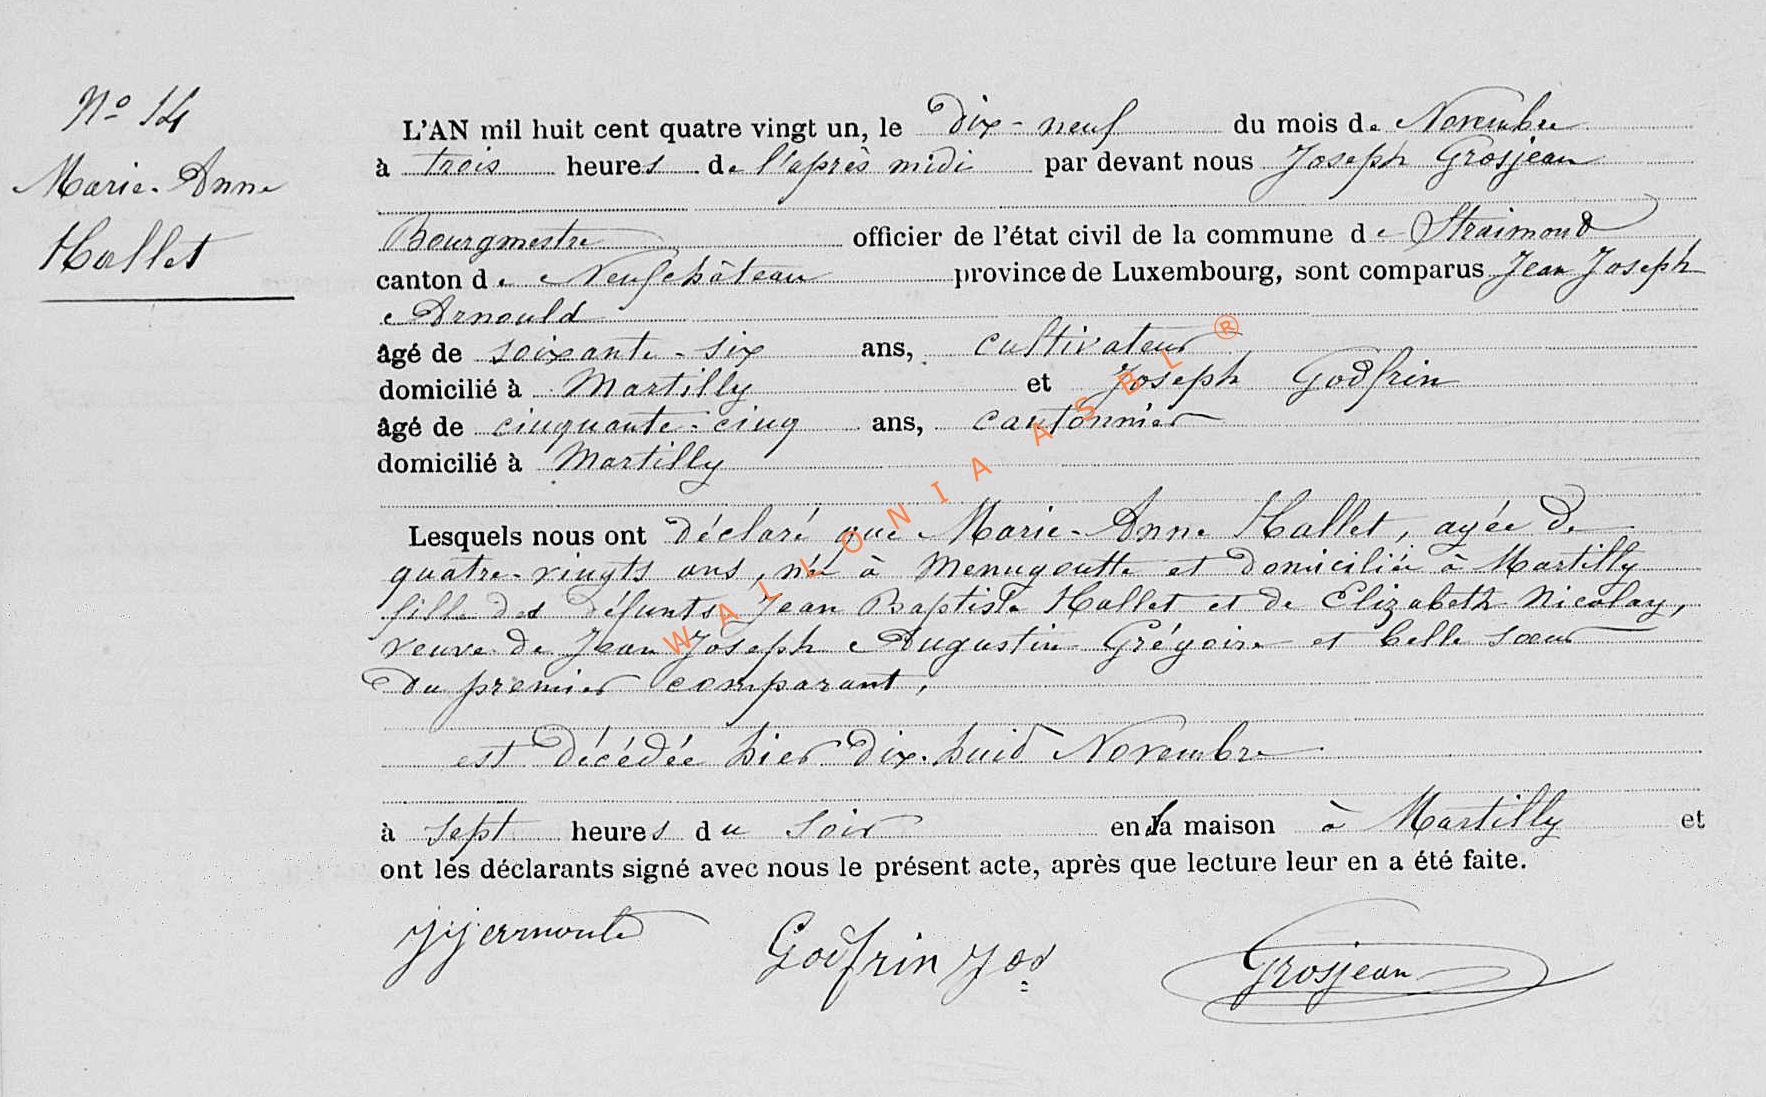 N° 14
Marie-Anne
Hallet
L'AN mil huit cent quatre vingt un, le dix-neuf du mois de Novembre
à trois heures de l'après midi par devant nous Joseph Grosjean
Bourgmestre officier de l'état civil de la commune de Straimont
canton de Neufchâteau province de Luxembourg, sont comparus Jean Joseph
Arnould
âgé de soixante-six ans, cultivateur
domicilié à Martilly et Joseph Godfrin
âgé de cinquante-cinq ans, cantonnier
domicilié à Martilly
Lesquels nous ont déclaré que Marie-Anne Hallet, agée de
quatre-vingts ans, née à Menugoutte et domiciliée à Martilly
fille des défunts Jean Baptiste Hallet et de Elizabeth Nicolay,
veuve de Jean Joseph Augustin Grégoire et belle sœur
du premier comparant,
est décédée hier dix-huit Novembre
à sept heures du soir en sa maison à Martilly et
ont les déclarants signé avec nous le présent acte, après que lecture leur en a été faite.
JJarnould Godfrin Jos Grosjean
WALLONIA ASBL ®